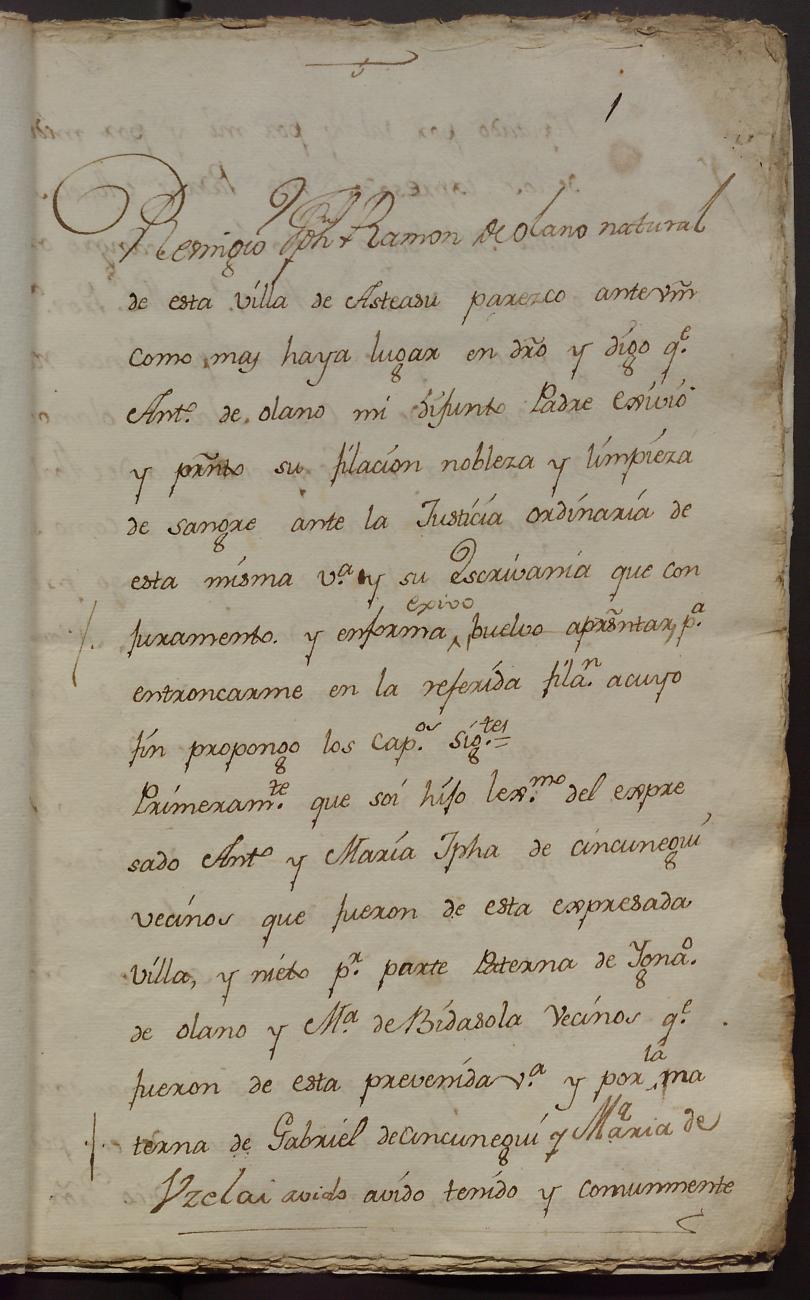 1
Remigio Jph Ramon de olano natural
de esta villa de Asteasu parezco ante vm̃
como mas haya lugar en dr̃o y digo q.e
Ant.o de olano mi difunto Padre exivió
y pr̃nto su filacion nobleza y limpieza
de sangre ante la Justicia ordinaria de
esta misma v.a y su Escrivania que con
exivo
juramento. y enforma, buelvo apr̃sntar, p.a
entroncarme en la referida fila.n acuyo
fin propongo los Cap.os sig.tes =
Primeram.te que soi hijo lex.mo del expre
sado Ant.o y Maria Jpha de cincunegui
vecinos que fueron de esta expresada
villa, y nieto p.r parte Paterna de Ygna.o
de olano y M.a de Bidasola Vecinos q.e
fueron de esta prevenida v.a y por la ma
terna de Gabriel de cincunegui y Maria de
Vzelai avido tenido y comunmente